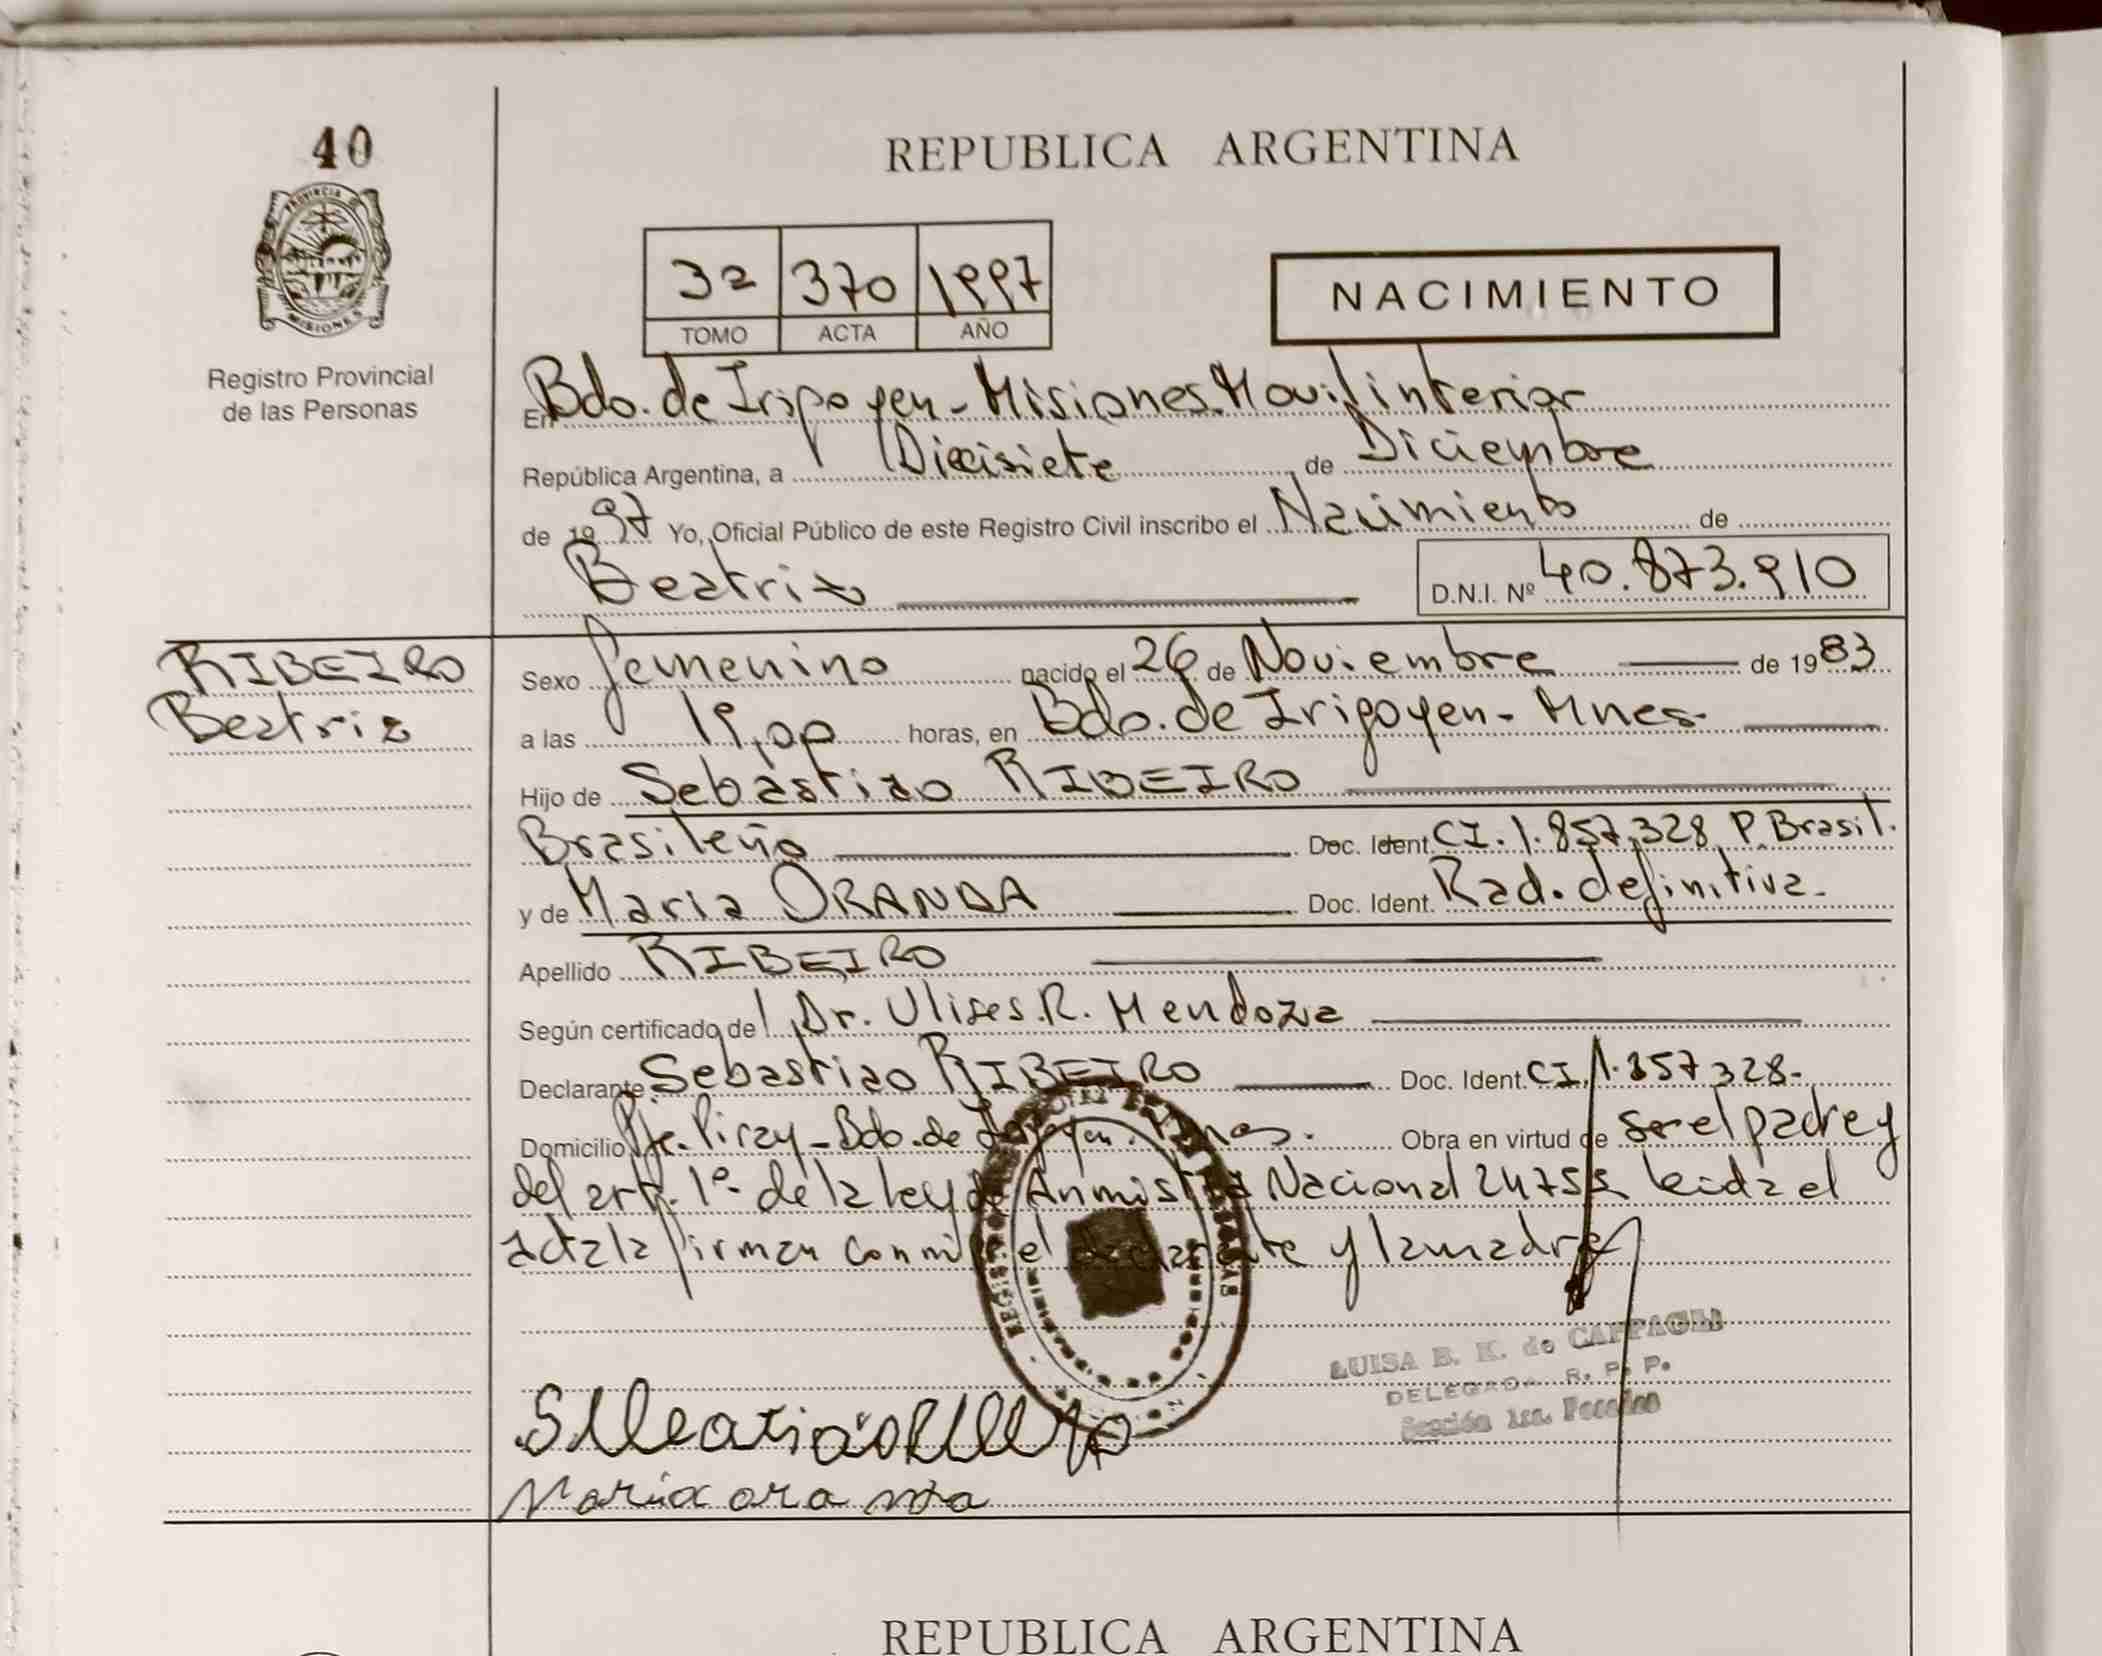 40
PROVINCIA
MISIONES
Registro Provincial
de las Personas
REPUBLICA ARGENTINA
32 370 1997
TOMO ACTA AÑO
NACIMIENTO
En Bdo. de Irigoyen - Misiones. Movil interior
República Argentina, a Diecisiete de Diciembre
de 1997 Yo, Oficial Público de este Registro Civil inscribo el Nacimiento de
Beatriz D.N.I. Nº 40.873.910
RIBEIRO
Beatriz
Sexo femenino nacido el 26 de Noviembre de 1983
a las 19,00 horas, en Bdo. de Irigoyen - Mnes.
Hijo de Sebastiao RIBEIRO
Brasileño Doc. Ident. CI. 1.857.328 P. Brasil.
y de Maria ORANDA Doc. Ident. Rad. definitiva.
Apellido RIBEIRO
Según certificado de Dr. Ulises R. Mendoza
Declarante Sebastiao RIBEIRO Doc. Ident. CI. 1.857.328-
Domicilio Pje. Piray - Bdo. de Irigoyen. Mnes. Obra en virtud de ser el padre y
del art. 1º- de la ley de Anmistia Nacional 24755 leida el
acta la firman conmigo el declarante y la madre
LUISA B. K. de
DELEGADA R. P. P.
Sección 1ra. Posadas
Maria oranda
REPUBLICA ARGENTINA